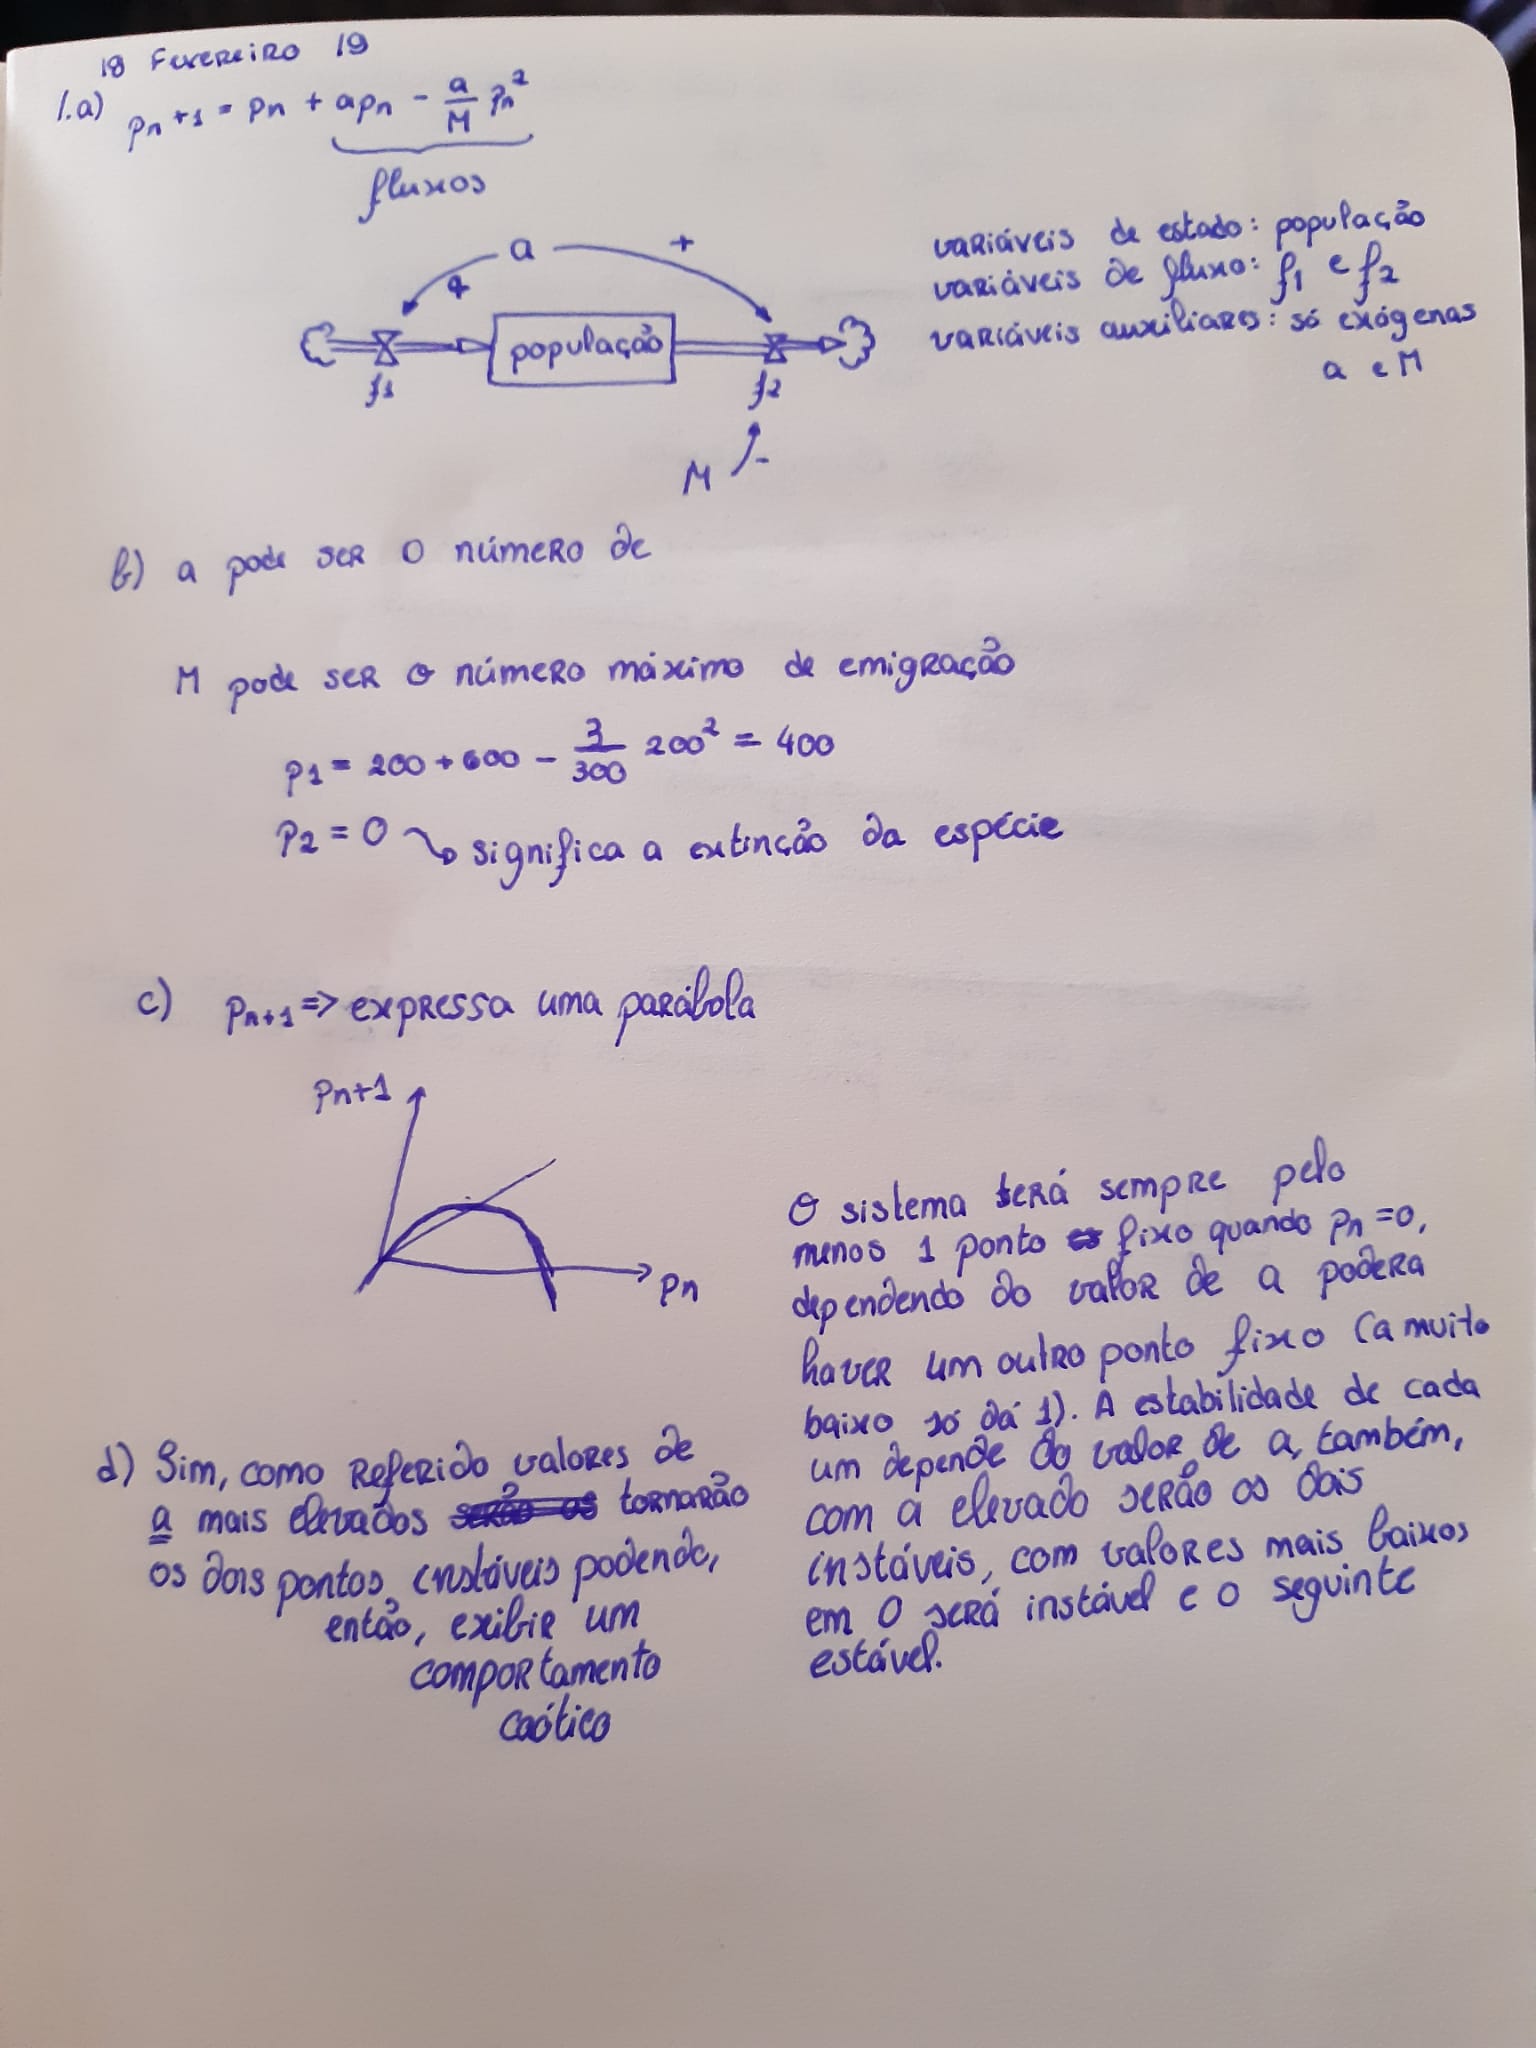 18 Fevereiro 19
1.a) pn+1 = pn + apn - a/M pn²
fluxos
a +
+
população
f1 f2
M -
variáveis de estado: população
variáveis de fluxo: f1 e f2
variáveis auxiliares: só exógenas
a e M
b) a pode ser o número de
M pode ser o número máximo de emigração
p1 = 200 + 600 - 3/300 200² = 400
p2 = 0 ↳ significa a extinção da espécie
c) pn+1 => expressa uma parábola
pn+1
pn
O sistema terá sempre pelo
menos 1 ponto fixo quando pn = 0,
dependendo do valor de a podera
haver um outro ponto fixo (a muito
baixo só dá 1). A estabilidade de cada
um depende do valor de a, também,
com a elevado serão os dois
instáveis, com valores mais baixos
em 0 será instável e o seguinte
estável.
d) Sim, como referido valores de
a mais elevados serão os tornarão
os dois pontos instáveis podendo,
então, exibir um
comportamento
caótico